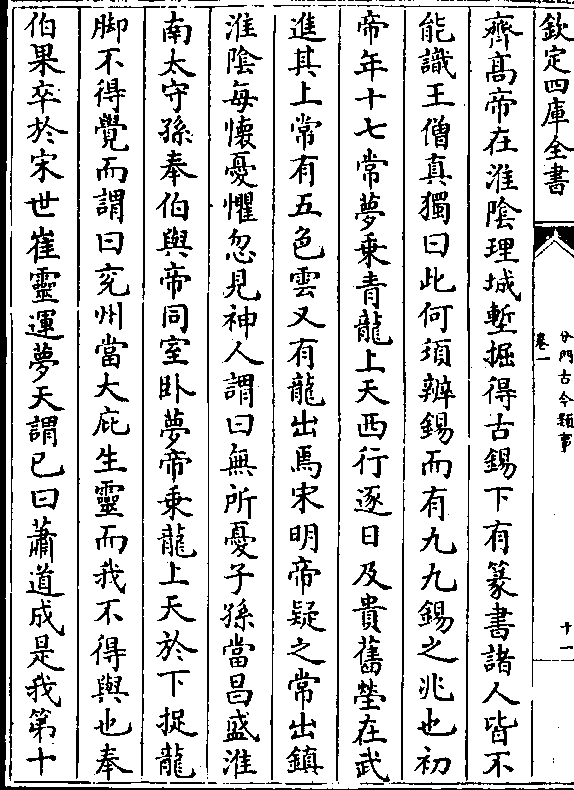 欽定四庫全書
分門古今類事
卷一
十一
齊髙帝在淮陰理城塹掘得古錫下有篆書諸人皆不
能識王僧真獨曰此何須辨錫而有九九錫之兆也初
帝年十七常夢乗青龍上天西行逐日及貴舊塋在武
進其上常有五色雲又有龍出焉宋明帝疑之常出鎮
淮陰每懐憂懼忽見神人謂曰無所憂子孫當昌盛淮
南太守孫奉伯與帝同室卧夢帝乗龍上天於下捉龍
脚不得覺而謂曰兖州當大庇生靈而我不得與也奉
伯果卒於宋世崔靈運夢天謂已曰蕭道成是我第十